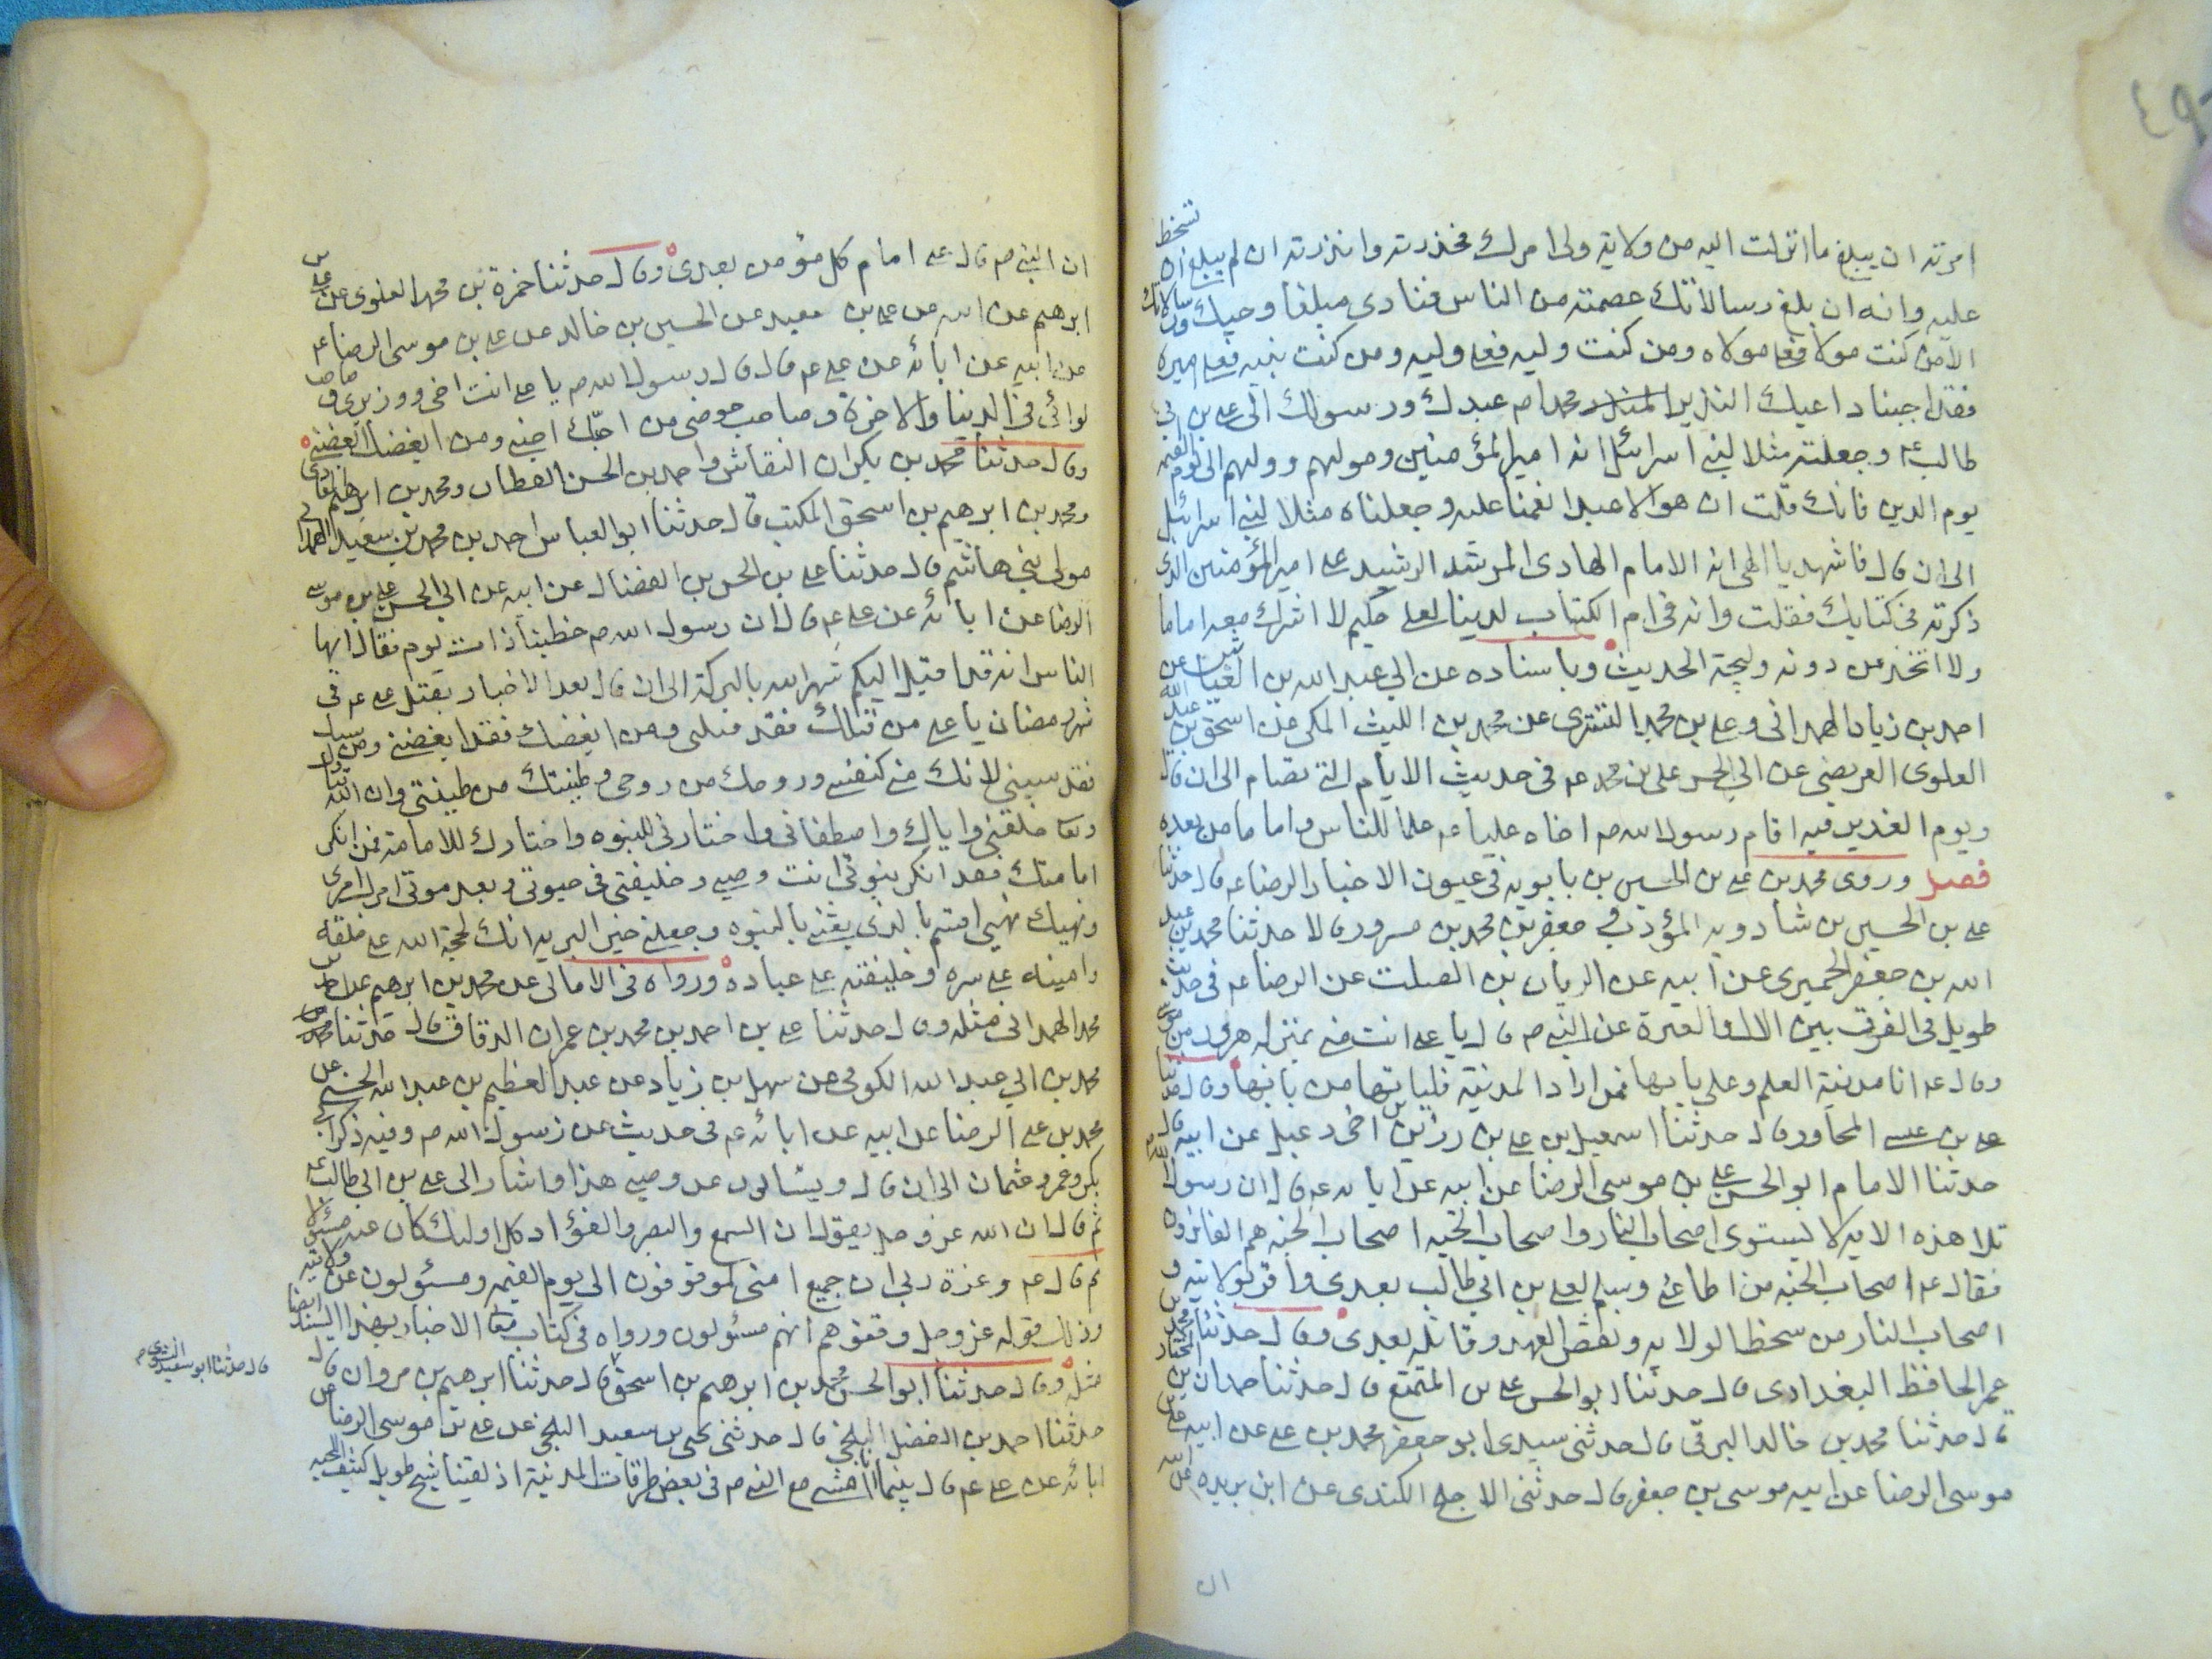 امرته ان يبلغ ما انزلت اليه من ولايته ولى امرك فحذرته وانذرته ان لم يبلغ ان تسخط
عليه وانه ان بلغ رسالاتك عصمته من الناس فنادى مبلغا وحيك ورسالاتك
الا من كنت مولاه فعلى مولاه ومن كنت وليه فعلى وليه ومن كنت نبيه فعلى اميره
فقد اجبنا داعيك النذير المنذر محمدا ص عبدك ورسولك الى على بن ابى
طالب ع وجعلته مثلا لبنى اسرائيل انه امير المؤمنين ومولهم ووليهم الى يوم القيمه
يوم الدين فانك قلت ان هو الا عبد انعمنا عليه وجعلناه مثلا لبنى اسرائيل
الى ان قال فاشهد يا الهى انه الامام الهادى المرشد الرشيد على امير المؤمنين الذى
ذكرته فى كتابك فقلت وانه فى ام الكتاب لدينا لعلى حكيم لا اشرك معه اماما
ولا اتخذ من دونه وليجة الحديث وباسناده عن ابى عبد الله بن عن
احمد بن زياد الهمدانى وعلى بن محمد التسترى عن محمد بن الليث المكى عن اسحق بن عبد الله
العلوى العريضى عن ابى الحسن على بن محمد ع فى حديث الايام التى تصام الى ان قال
ويوم الغدير فيه اقام رسول الله ص اخاه عليا ع علما للناس واماما من بعده
فصل وروى محمد بن على بن الحسين بن بابويه فى عيون الاخبار الرضا ع قال حدثنا
على بن الحسين بن شادويه المؤدب و جعفر بن محمد بن مسرور قالا حدثنا محمد بن عبد
الله بن جعفر الحميرى عن ابيه عن الريان بن الصلت عن الرضا ع فى حديث
طويل فى الفرق بين الال والعترة عن النبى ص قال يا على انت منى بمنزله هرون من موسى
وقال ع انا مدينة العلم وعلى بابها فمن اراد المدينة فلياتها من بابها وقال حدثنا
على بن عيسى المجاور قال حدثنا اسمعيل بن على بن رزين اخى دعبل عن ابيه قال
حدثنا الامام ابو الحسن على بن موسى الرضا عن ابيه عن ابائه ع قال ان رسول الله ص
تلا هذه الايه لا يستوى اصحاب النار واصحاب الجنه اصحاب الجنه هم الفائزون
فقال ع اصحاب الجنه من اطاعنى وسلم لعلى بن ابى طالب بعدى واقر بولايته و
اصحاب النار من سخط الولايه ونقض العهد وقاتله بعدى وقال حدثنا محمد بن
عمر الحافظ البغدادى قال حدثنا ابو الحسن على بن المتمتع قال حدثنا حمدان بن المختار
قال حدثنا محمد بن خالد البرقى قال حدثنى سيدى ابو جعفر محمد بن على عن ابيه على بن
موسى الرضا عن ابيه موسى بن جعفر قال حدثنى الاجلح الكندى عن ابن بريده عن ابيه
ان
ان النبى ص قال على امام كل مؤمن بعدى وقال حدثنا حمزة بن محمد العلوى عن على بن
ابرهيم عن ابيه عن على بن معبد عن الحسين بن خالد عن على بن موسى الرضا ع
عن ابيه عن ابائه عن على ع قال قال رسول الله ص يا على انت اخى ووزيرى وصاحب
لوائى فى الدنيا والاخرة وصاحب حوضى من احبك احبنى ومن ابغضك ابغضنى
وقال حدثنا محمد بن بكران النقاش واحمد بن الحسن القطان ومحمد بن ابرهيم
ومحمد بن ابرهيم بن اسحق المكتب قال حدثنا ابو العباس احمد بن محمد بن سعيد الهمدانى
مولى بنى هاشم قال حدثنا على بن الحسن بن الفضال عن ابيه عن ابى الحسن على بن موسى
الرضا عن ابائه عن على ع قال ان رسول الله ص خطبنا ذات يوم فقال ايها
الناس انه قد اقبل اليكم شهر الله بالبركة الى ان قال بعد الاخبار بقتل على ع فى
شهر رمضان يا على من قتلك فقد قتلنى ومن ابغضك فقد ابغضنى ومن سبك
فقد سبنى لانك منى كنفسى وروحك من روحى وطينتك من طينتى وان الله تبارك
وتعا خلقنى واياك واصطفانى واختارنى للنبوه واختارك للامامة فمن انكر
امامتك فقد انكر نبوتى انت وصيى وخليفتى فى حيوتى وبعد موتى امرك امرى
ونهيك نهيى اقسم بالذى بعثنى بالنبوه وجعلنى خير البريه انك لحجة الله على خلقه
وامينه على سره وخليفته على عباده ورواه فى الامالى عن محمد بن ابرهيم عن احمد بن
محمد الهمدانى مثله وقال حدثنا على بن احمد بن محمد بن عمران الدقاق قال حدثنا محمد بن
محمد بن ابى عبد الله الكوفى عن سهل بن زياد عن عبد العظيم بن عبد الله الحسنى عن
محمد بن على الرضا عن ابيه عن ابائه ع فى حديث عن رسول الله ص وفيه ذكر ابى
بكر وعمر وعثمان الى ان قال ويسئالون عن وصيى هذا واشار الى على بن ابى طالب ع
ثم قال ان الله عز وجل يقول ان السمع والبصر والفؤاد كل اوليك كان عنه مسئولا
ثم قال ع وعزة ربى ان جميع امتى لموقوفون الى يوم القيمه ومسئولون عن ولايته
وذلك قوله عز وجل وقفوهم انهم مسئولون ورواه فى كتاب معانى الاخبار بهذا السند ايضا
مثله وقال حدثنا ابو الحسن محمد بن ابرهيم بن اسحق قال حدثنا ابرهيم بن مروان قال
قال حدثنا ابو سعيد
حدثنا احمد بن الفضل البلخى قال حدثنى يحيى بن سعيد البلخى عن على بن موسى الرضا عن
ابائه عن على ع قال بينما انا امشى مع النبى ص فى بعض طرقات المدينة اذ لقينا شيخ طويل كثيف اللحيه